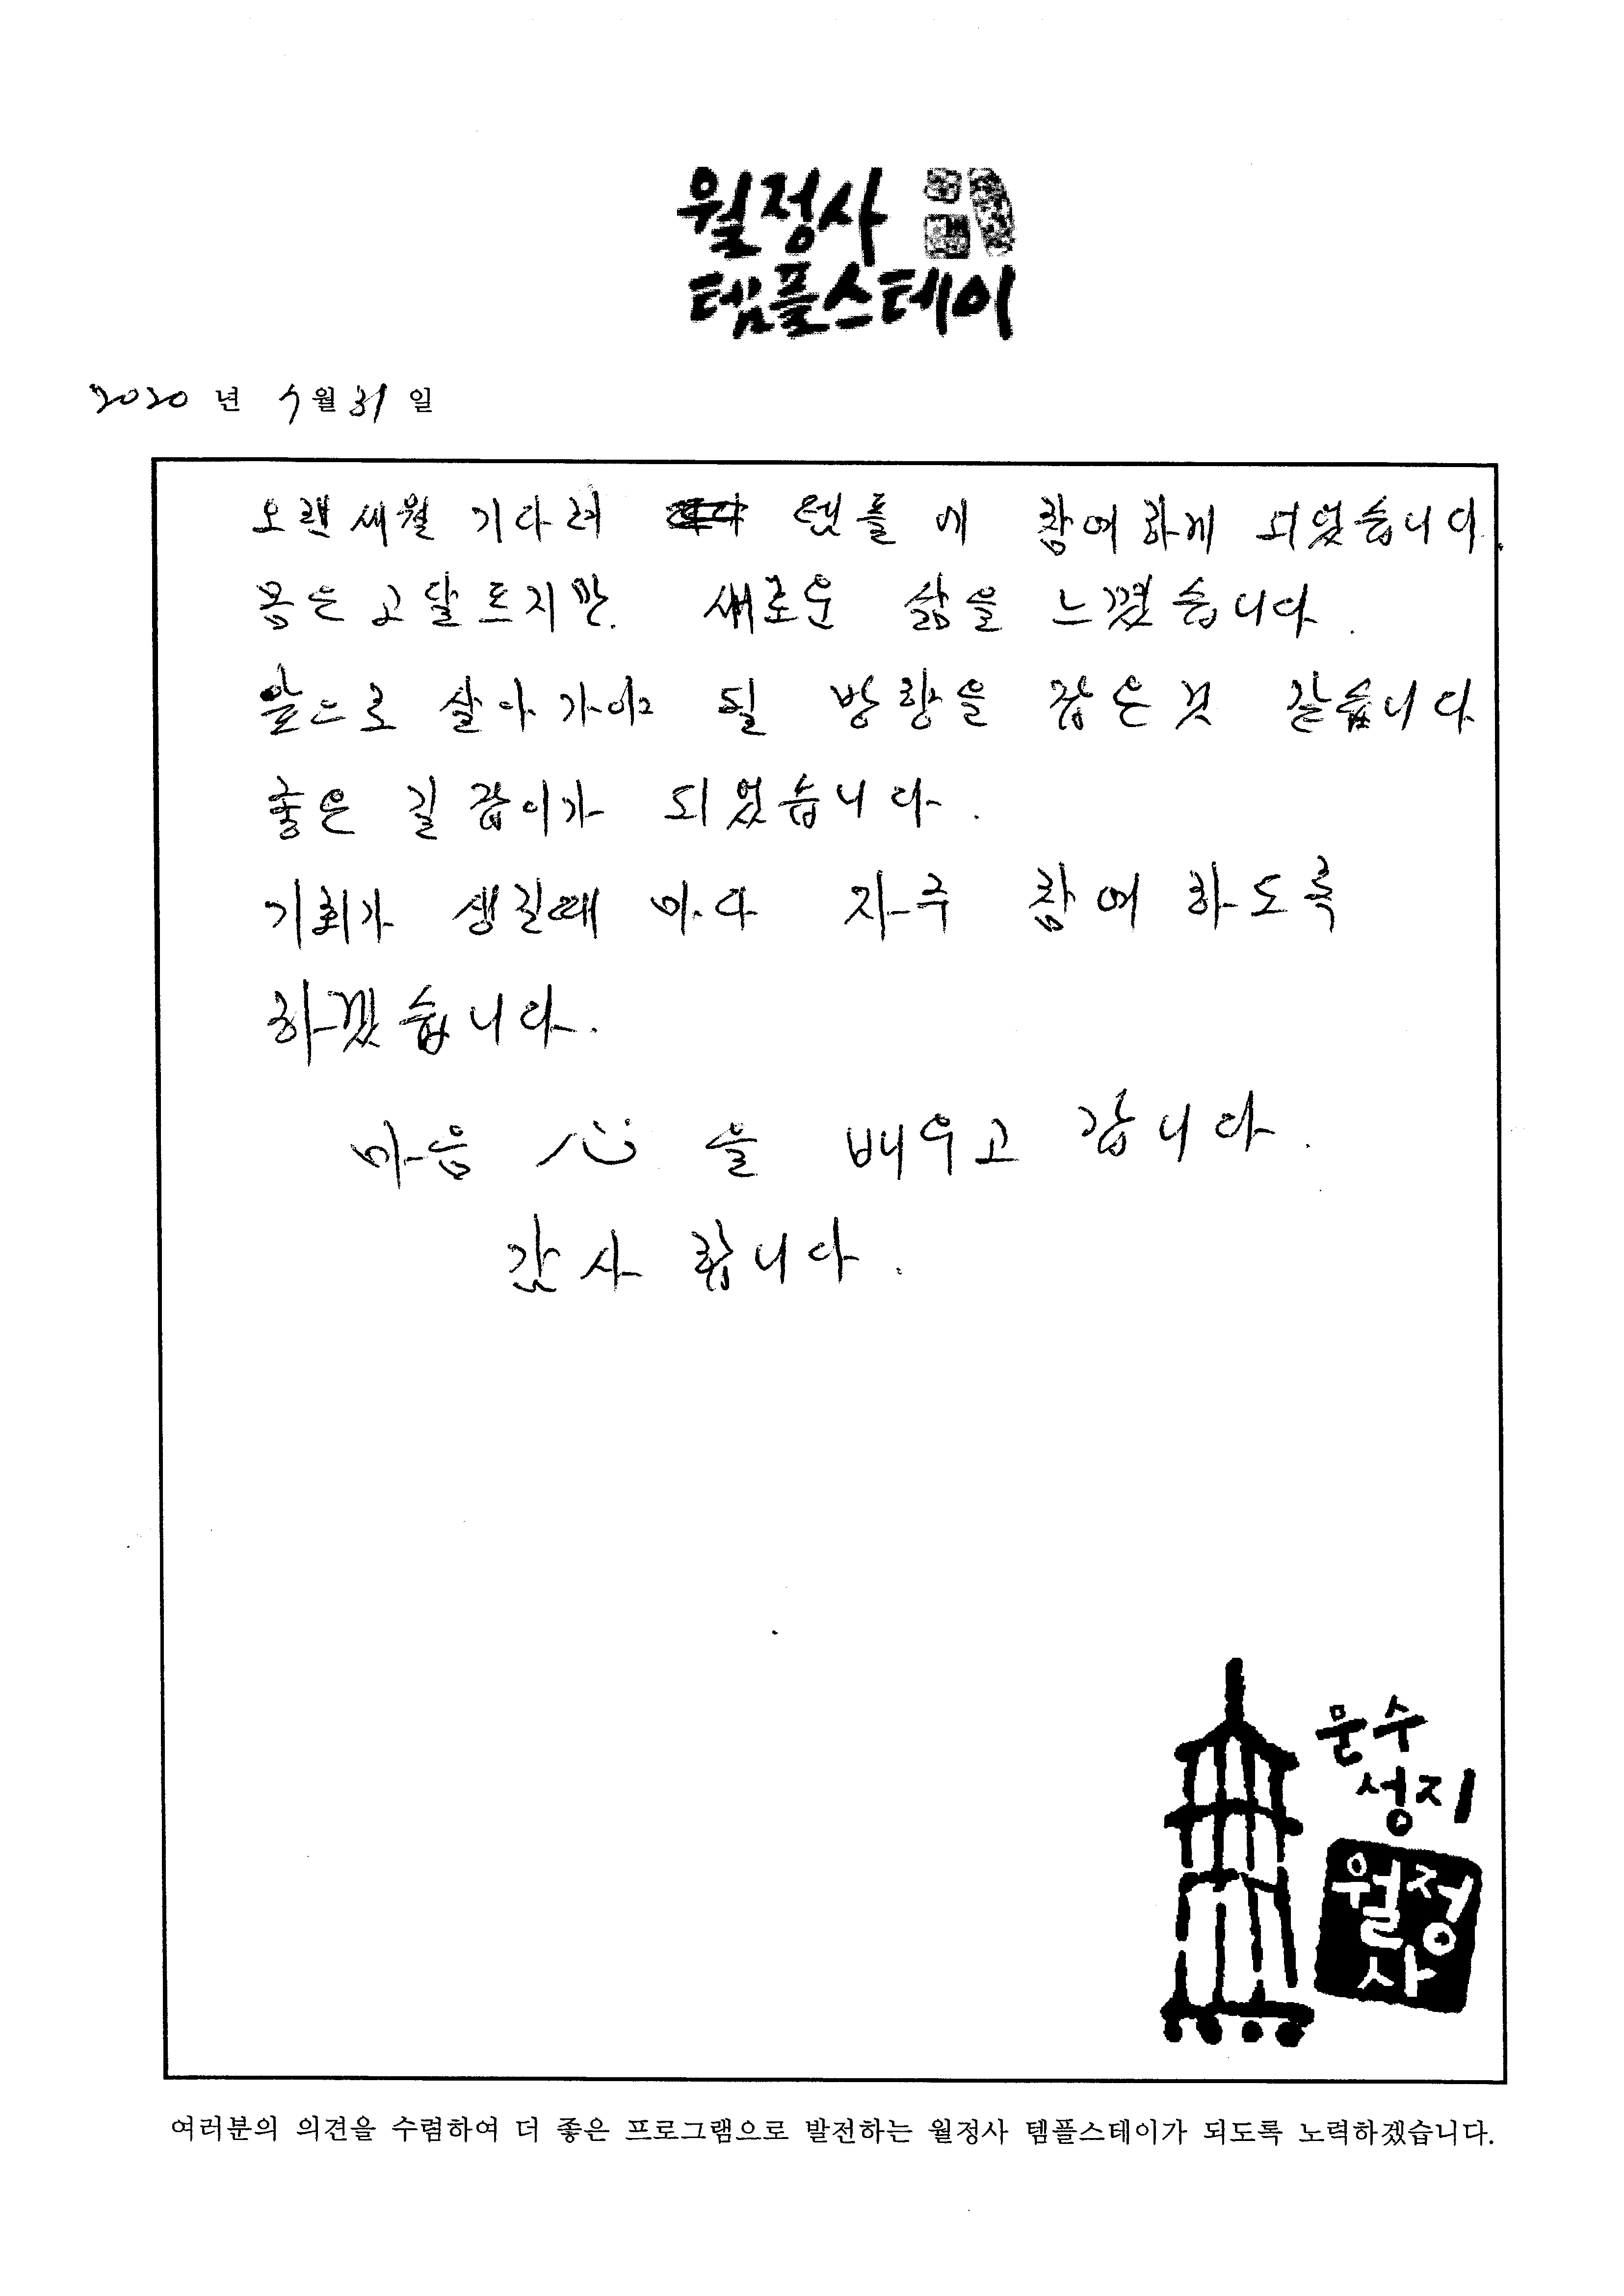 월정사
템플스테이
2020 년 7월 31 일
오랜 세월 기다려 템플에 참여하게 되었습니다.
몸은 고달프지만. 새로운 삶을 느꼈습니다.
앞으로 살아가야 될 방향을 잡은것 같습니다
좋은 길잡이가 되었습니다.
기회가 생길때 마다 자주 참여 하도록
하겠습니다.
마음 心 을 배우고 갑니다.
감사 합니다.
문수
성지
월정
사
여러분의 의견을 수렴하여 더 좋은 프로그램으로 발전하는 월정사 템플스테이가 되도록 노력하겠습니다.